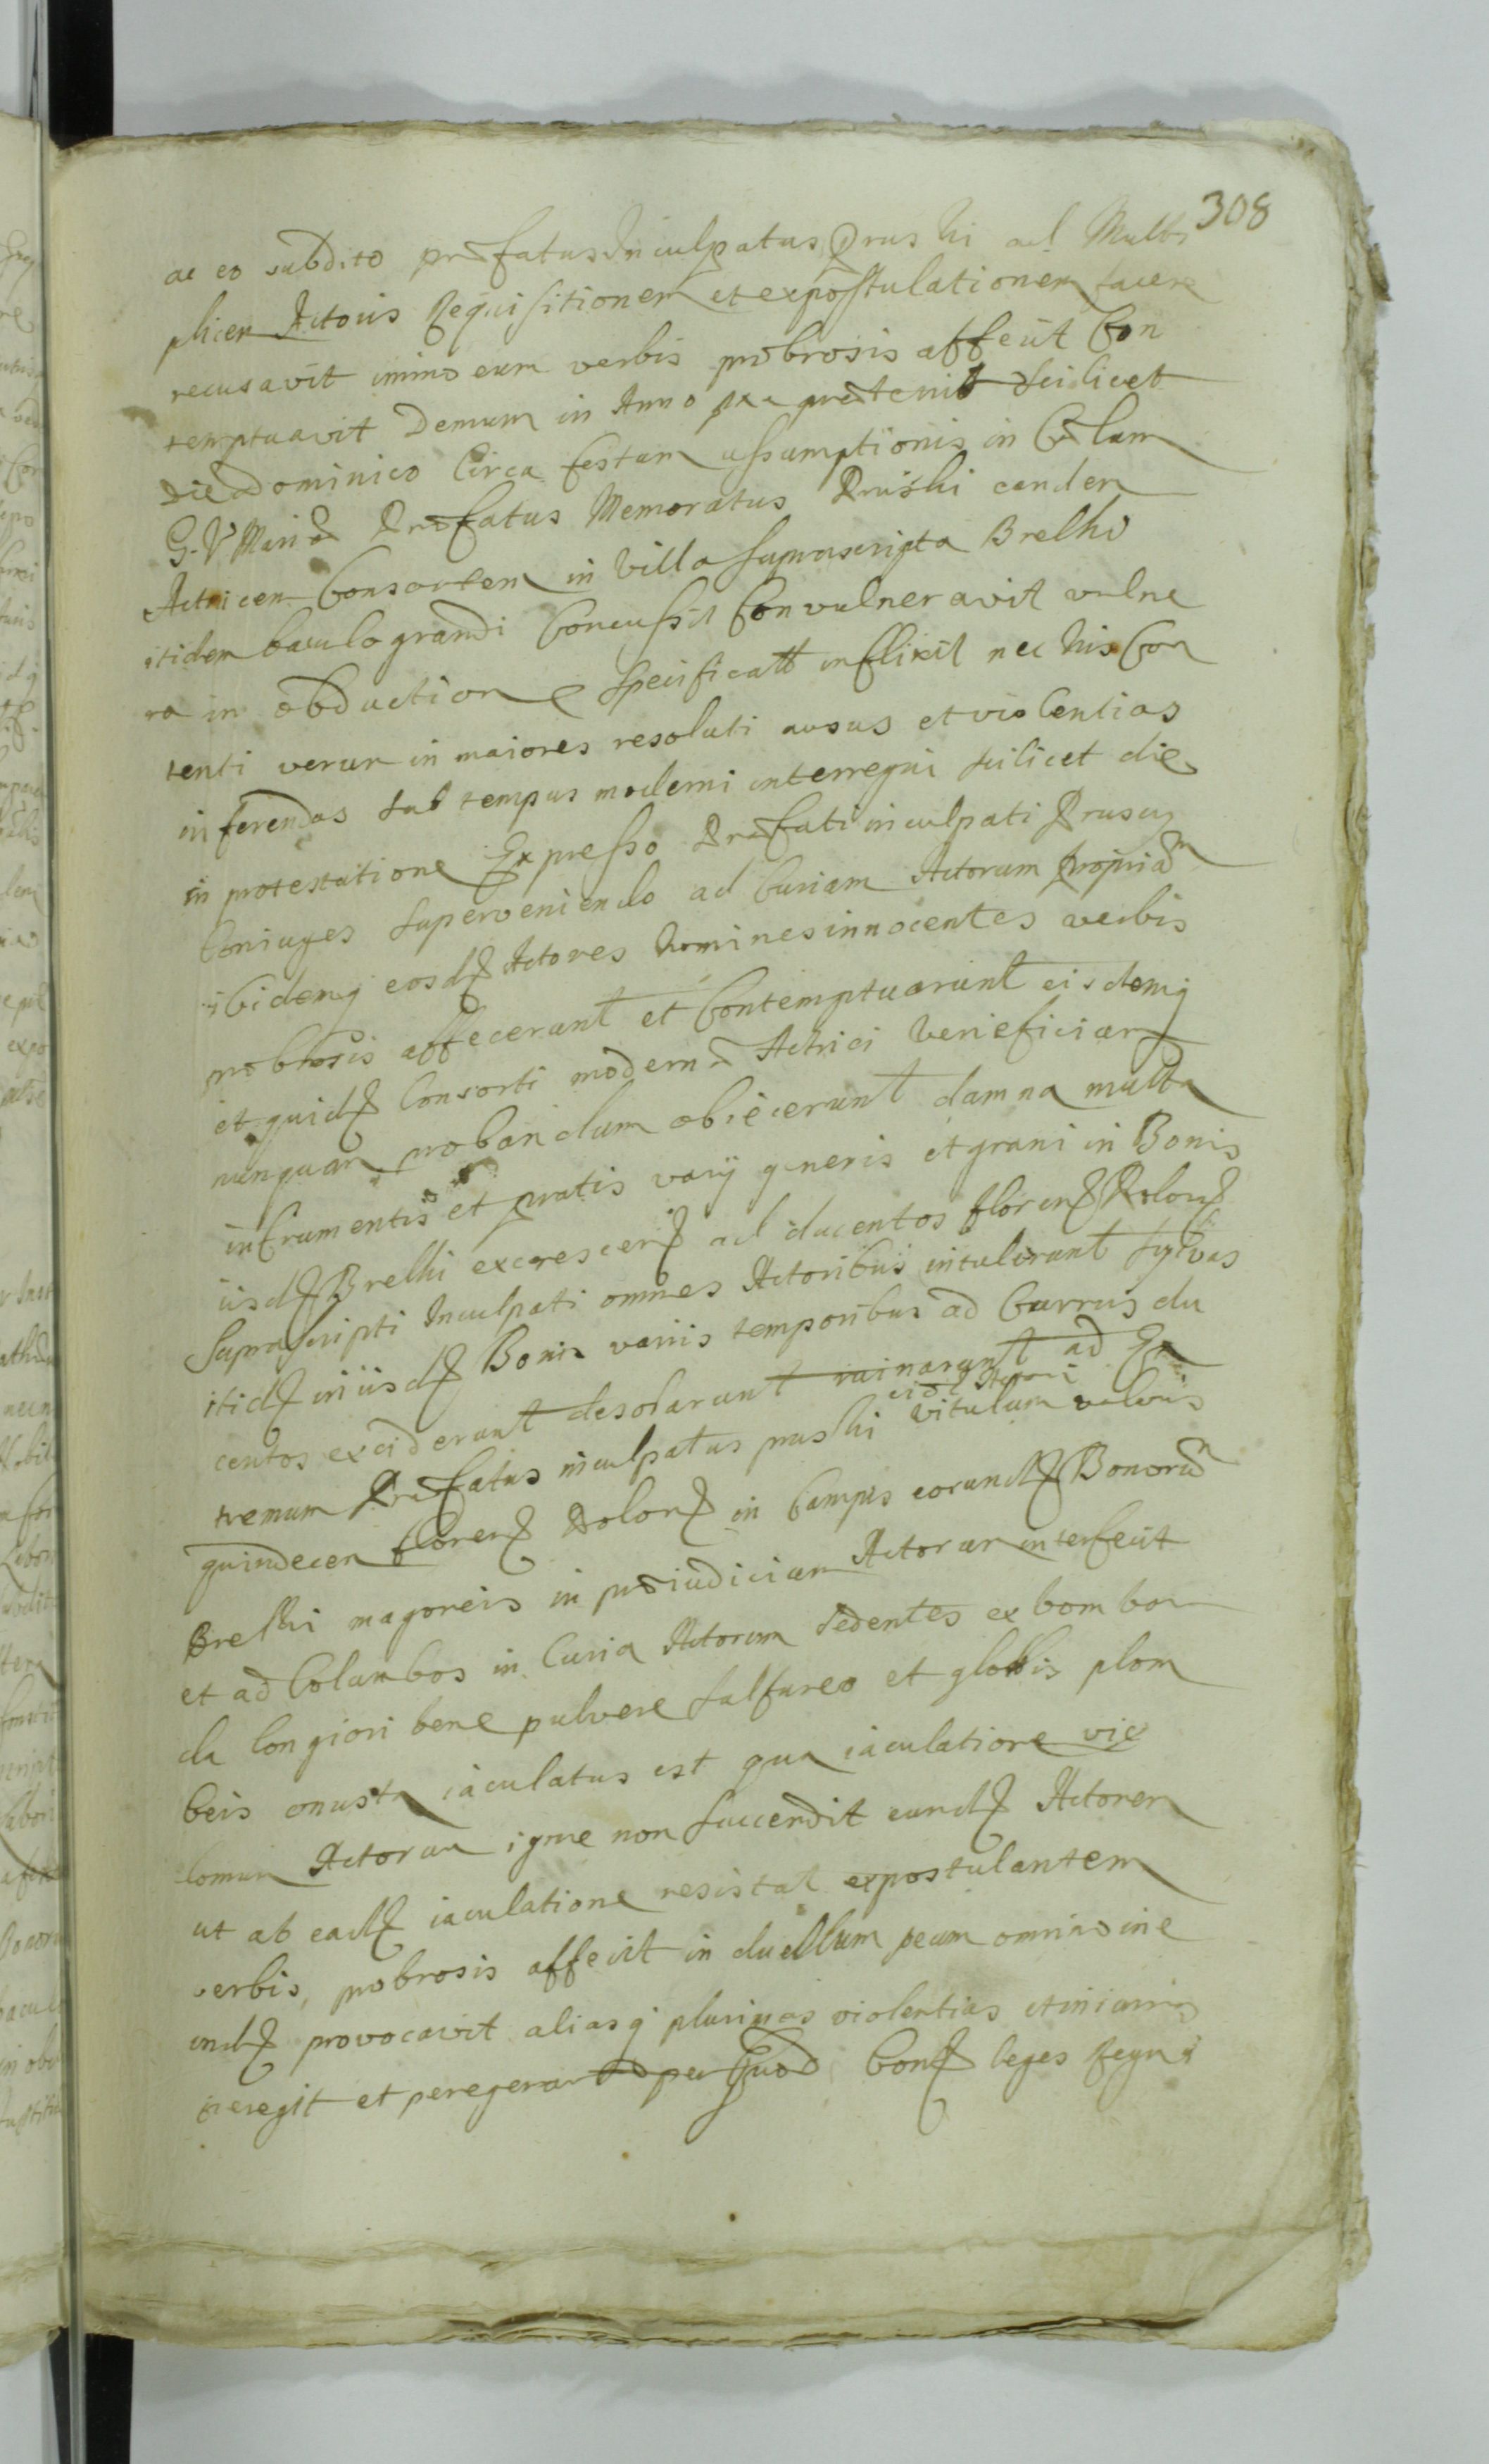 308
ac eo subdito præfatus Inculpatus Pruski ad Multi
plicem Actoris Requisitionem et expostulationem facere
recusavit immo eum verbis probrosis affecit Con
temptuavit Demum in Anno præterito scilicet
die Dominico Circa festum assumptionis in Cælum
G. V Mariæ Præfatus Memoratus Pruski eandem
Actricem Consortem in Villa suprascripta Brelki
itidem baculo grandi Concussit Convulneravit vulne
ra in obductione specificatt inflixit nec his Con
tenti verum in maiores resoluti ausus et violentias
inferendas sub tempus moderni interregni scilicet die
in protestatione Expresso Præfati inculpati Pruscy
Coniuges superveniendo ad Curiam Actorum propriam
ibidemq eosd Actores homines innocentes verbis
probrosis affecerunt et Contemptuarunt eisdemq
et quid Consorti modernæ Actrici veneficiam
nunquam probandum obiecerunt damna multa
in frumentis et pratis varij generis et grani in Bonis
iisd Brelki excrescen ad ducentos floren Polon
Suprascripti Inculpati omnes Actoribus intulerunt sylvas
itid in iisd Bonis variis temporibus ad Currus du
centos exciderunt desolarunt ruinarunt ad Ex
eid Actori
tremum Præfatus inculpatus pruski vitulum valoris
quindecem floren Polon in Campis eorund Bonorum
Brelki magoreis in præiudicium Actorum interfecit
et ad Columbos in Curia Actorum sedentes ex bombar
da longiori bene pulvere sulfureo et globis plom
beis onusta iaculatus est qua iaculatione vix
domum Actorum igne non succendit eund Actorem
ut ab ead iaculatione resistat expostulantem
verbis probrosis affecit in duellum secum omnino ine
und provocavit aliasq plurimas violentias et iniurias
peregit et peregerant per quod Con leges Regni